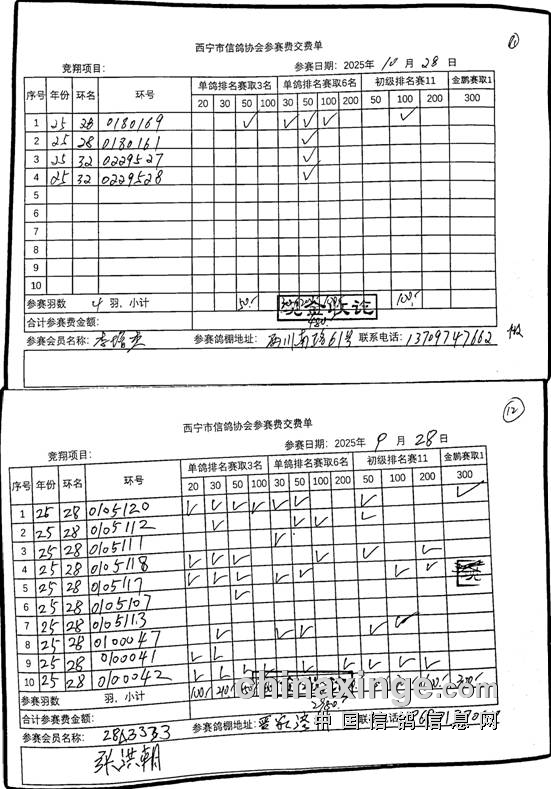 西宁市信鸽协会参赛费交费单
竞翔项目： 参赛日期：2025年10月28日
序号 年份 环名 环号 单鸽排名赛取3名 单鸽排名赛取6名 初级排名赛11 金鹏赛取1
20 30 50 100 30 50 100 200 50 100 200 300
1 25 28 0180169 ✓ ✓ ✓ ✓ ✓
2 25 28 0180161 ✓
3 25 32 0229527 ✓
4 25 32 0229528 ✓
5
6
7
8
9
10
参赛羽数 4 羽，小计 50.- 100.-
合计参赛费金额： 480.-
参赛会员名称： 参赛鸽棚地址： 联系电话：13709747662
12
西宁市信鸽协会参赛费交费单
竞翔项目： 参赛日期：2025年9月28日
序号 年份 环名 环号 单鸽排名赛取3名 单鸽排名赛取6名 初级排名赛11 金鹏赛取1
20 30 50 100 30 50 100 200 50 100 200 300
1 25 28 0105120
2 25 28 0105112
3 25 28 0105111
4 25 28 0105118
5 25 28 0105117
6 25 28 0105107
7 25 28 0105113
8 25 28 0100047
9 25 28 0100041
10 25 28 0100042
参赛羽数 羽，小计 100.- 210.- 300.-
合计参赛费金额：
参赛会员名称： 参赛鸽棚地址： 联系电话：
张洪朝
chinaxinge.com
中国信鸽信息网